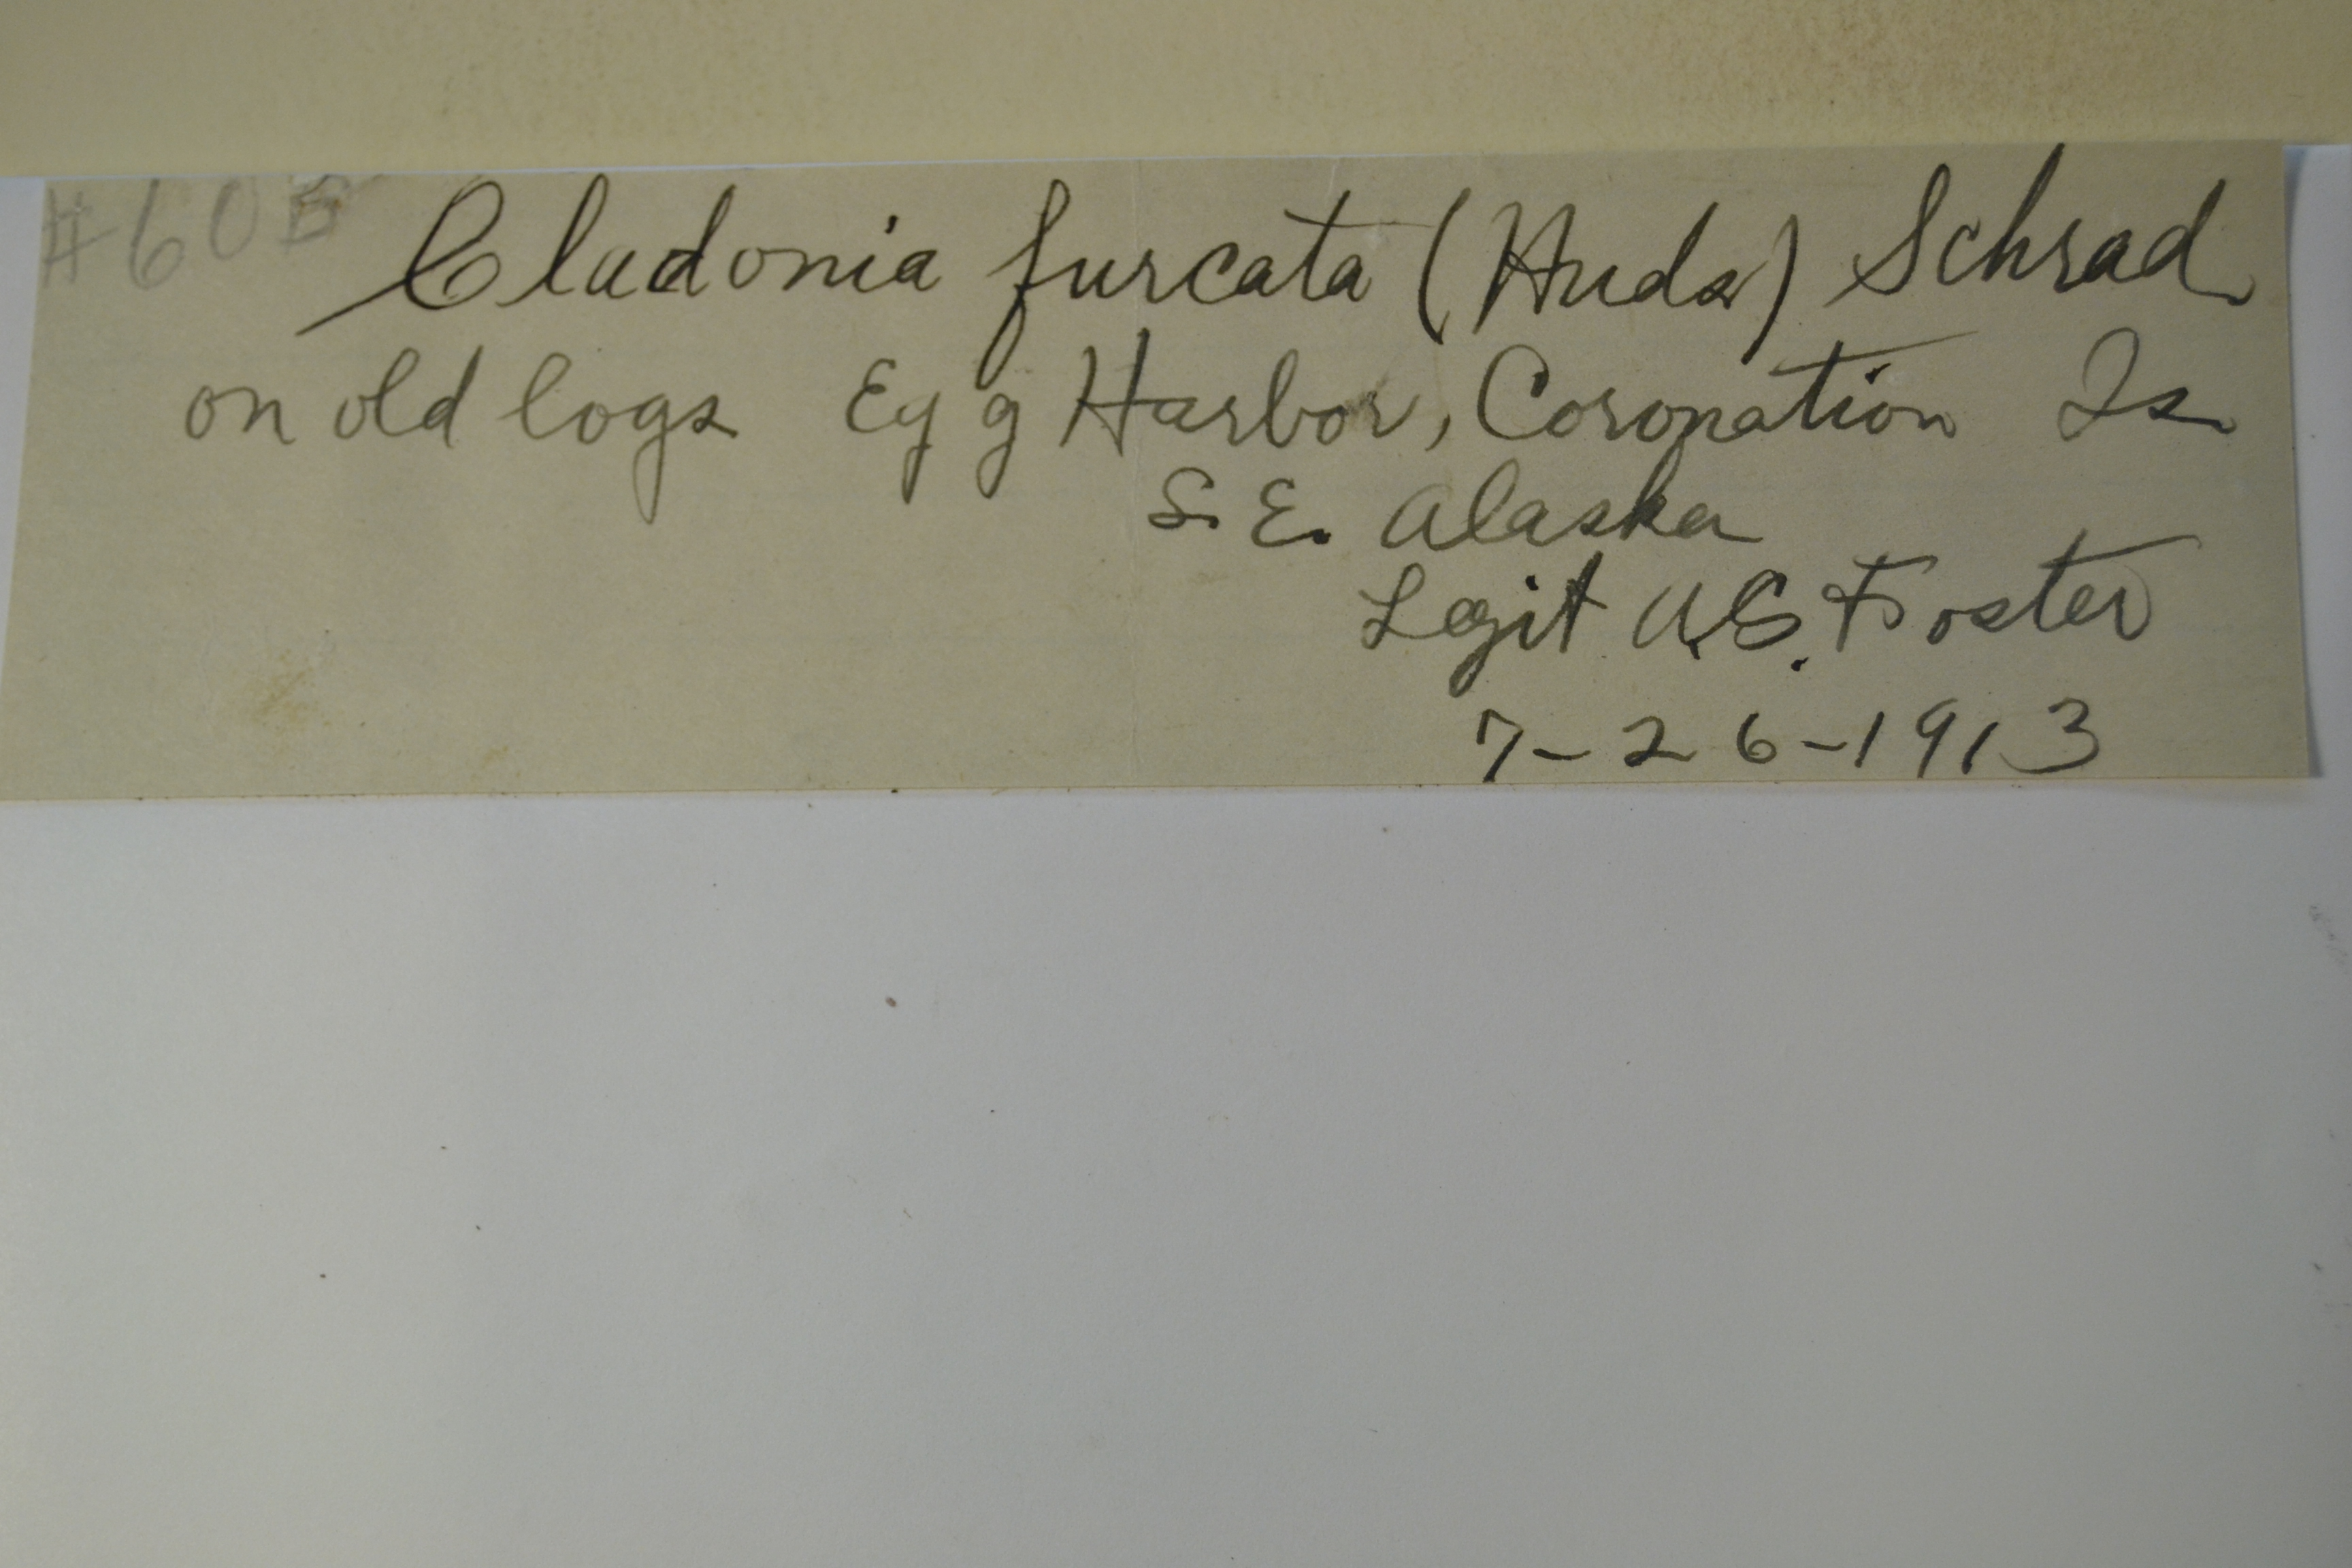 #60B Cladonia furcata (Huds) Schrad.
on old logs Egg Harbor, Coronation Is.
S. E. Alaska
Legit A.S. Foster
7-26-1913